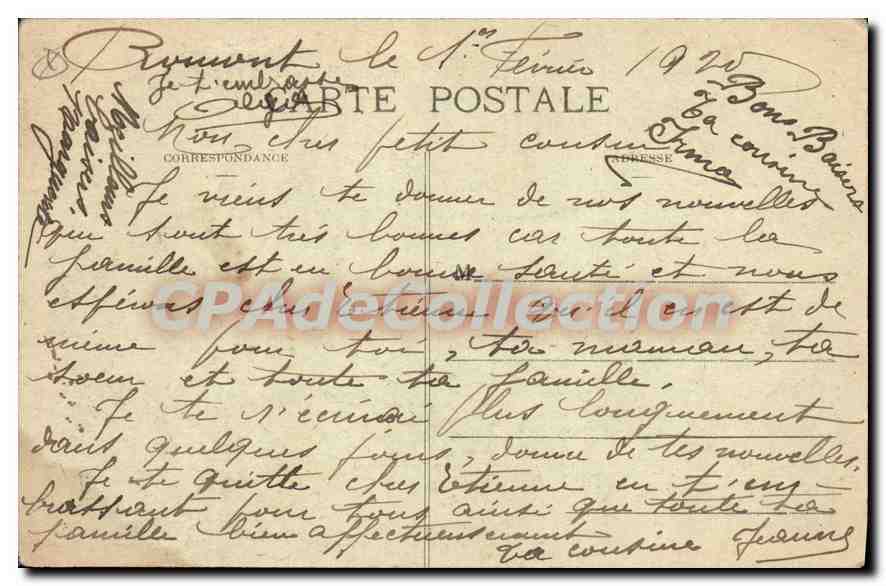 Romont le 1er Février 1920
Je t'embrasse
CARTE POSTALE
Mon cher petit cousin
CORRESPONDANCE
ADRESSE
Je viens te donner de nos nouvelles
qui sont très bonnes car toute la
famille est en bonne santé et nous
M
espérons cher Etienne qu'il en est de
même pour toi, ta maman, ta
soeur et toute ta famille.
Je te r'écrirai plus longuement
dans quelques jours, donne de tes nouvelles.
Je te quitte cher Etienne en t'em-
brassant pour tous ainsi que toute ta
famille bien affectueusement
ta cousine Jeanne
Bons Baisers
Ta cousine
Irma
Meilleurs
baisers
CPAdeCollection